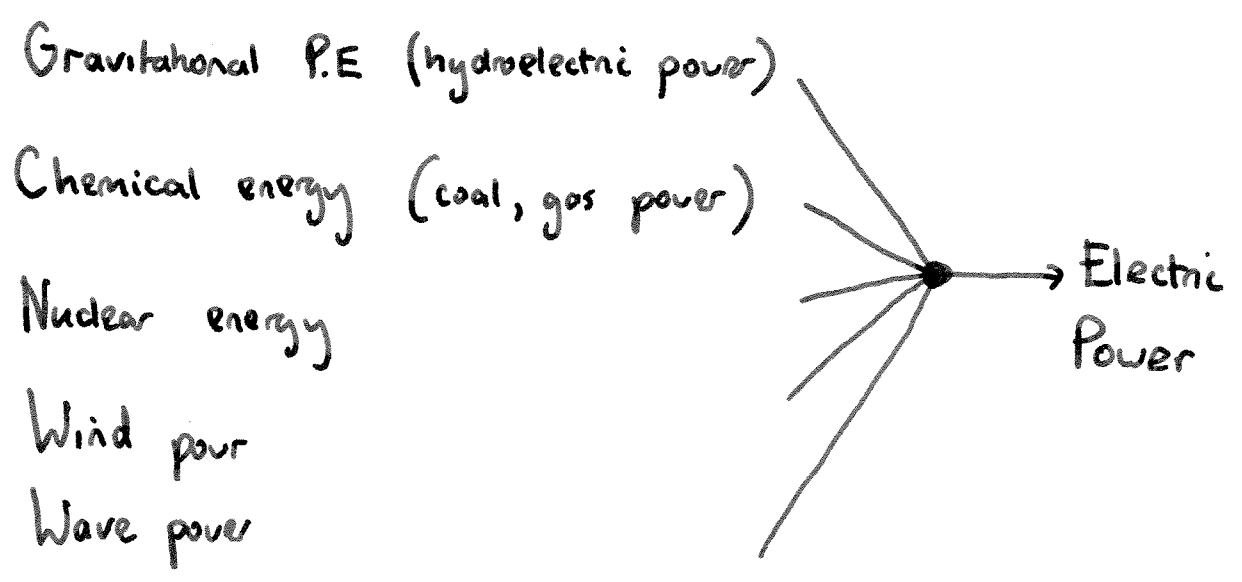 Gravitational P.E (hydroelectric power)
Chemical energy (coal, gas power)
Nuclear energy
Wind power
Wave power
Electric
Power